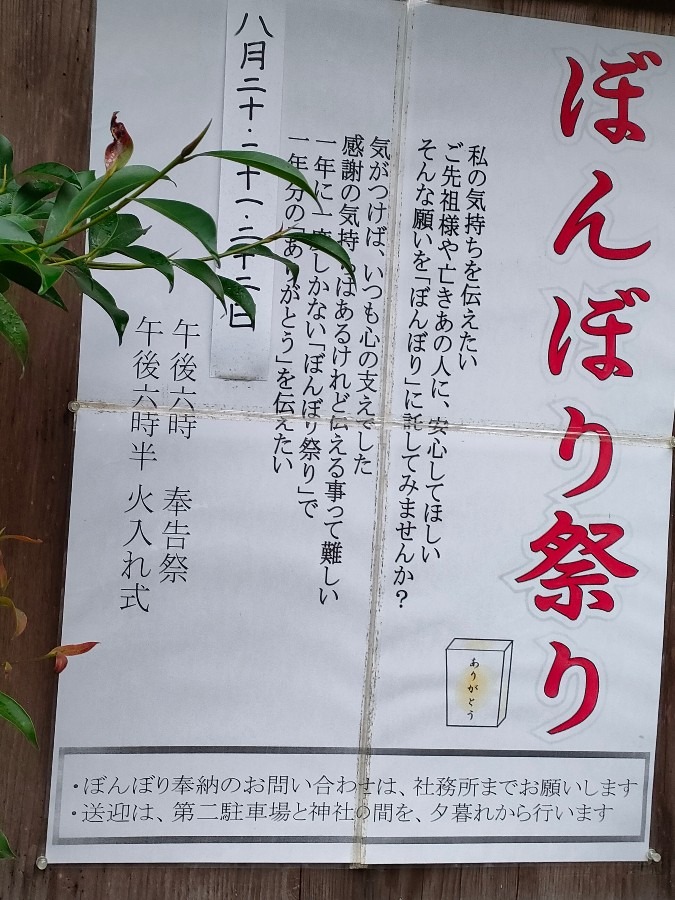 ぼんぼり祭り
私の気持ちを伝えたい
ご先祖様や亡きあの人に、安心してほしい
そんな願いを「ぼんぼり」に託してみませんか？
気がつけば、いつも心の支えでした
感謝の気持ちはあるけれど伝える事って難しい
一年に一度しかない「ぼんぼり祭り」で
一年分の「ありがとう」を伝えたい
八月二十・二十一・二十二日
午後六時　奉告祭
午後六時半　火入れ式
ありがとう
・ぼんぼり奉納のお問い合わせは、社務所までお願いします
・送迎は、第二駐車場と神社の間を、夕暮れから行います